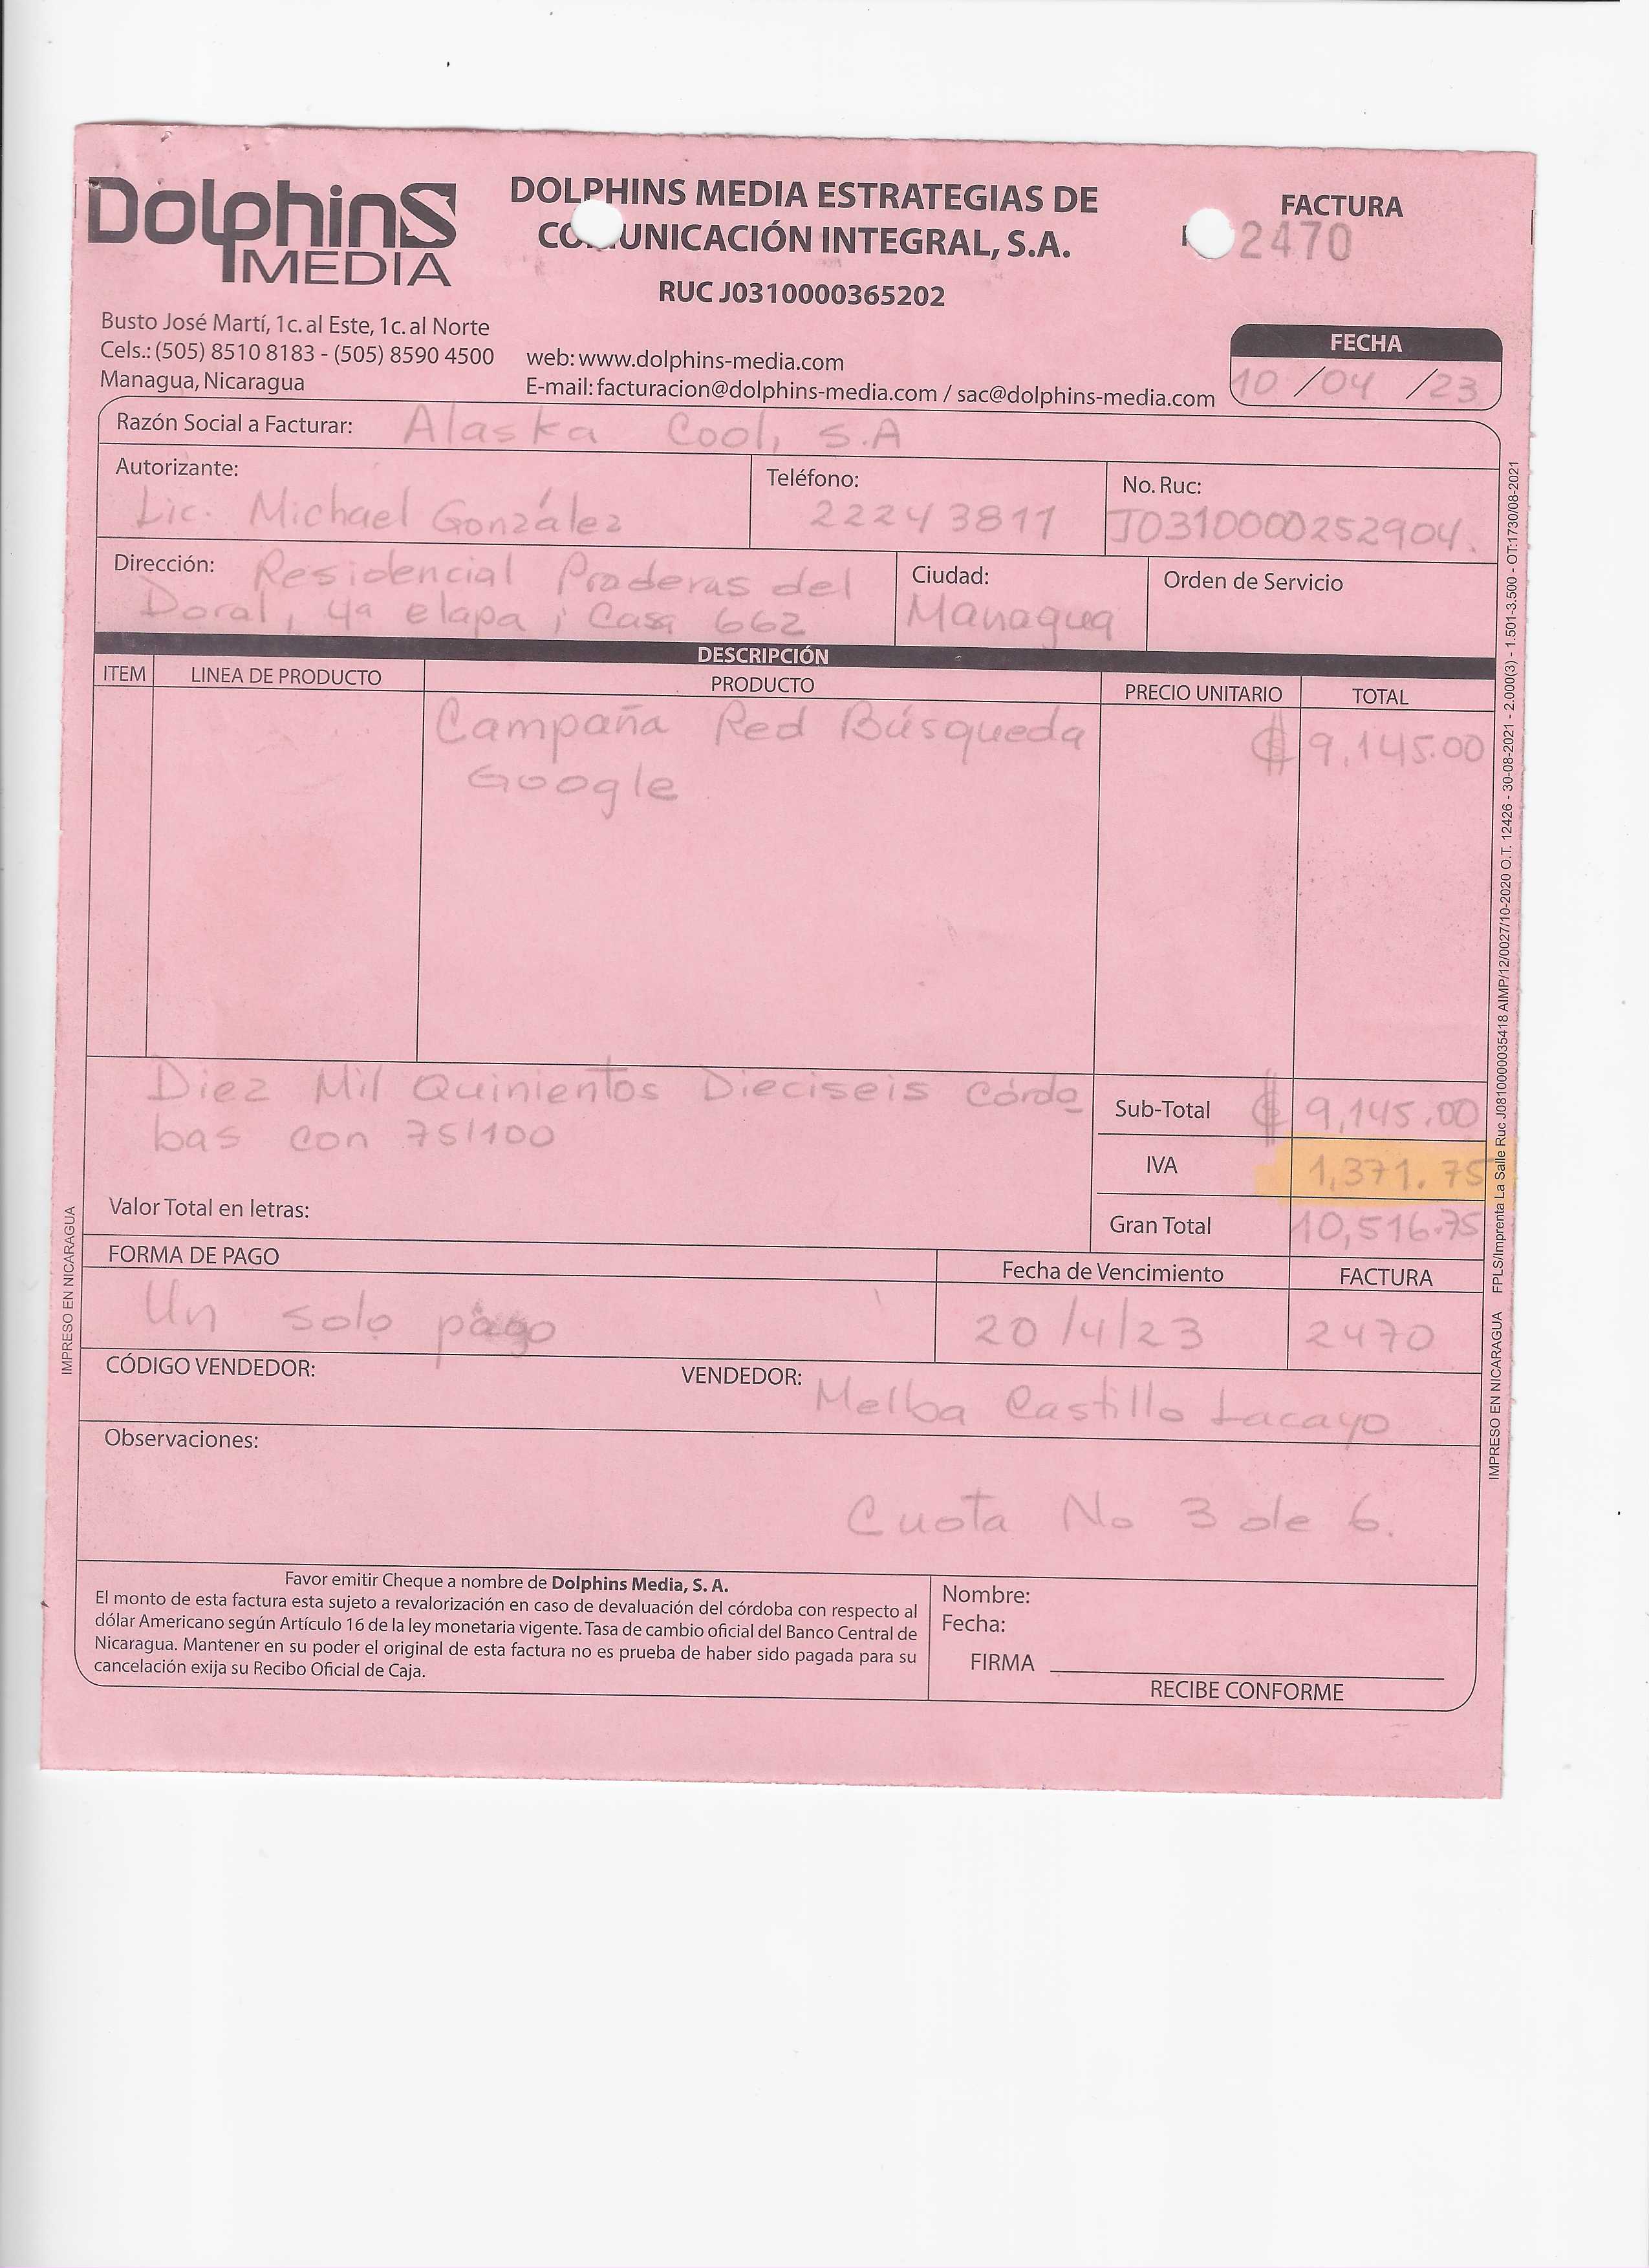 DolphinS
MEDIA
DOLPHINS MEDIA ESTRATEGIAS DE
COMUNICACIÓN INTEGRAL, S.A.
RUC J0310000365202
FACTURA
2470
Busto José Martí, 1c. al Este, 1c. al Norte
Cels.: (505) 8510 8183 - (505) 8590 4500
Managua, Nicaragua
web: www.dolphins-media.com
E-mail: facturacion@dolphins-media.com / sac@dolphins-media.com
FECHA
10 /04 /23
Razón Social a Facturar: Alaska Cool, S.A
Autorizante:
Lic. Michael González
Teléfono:
22243811
No. Ruc:
J0310000252904.
Dirección: Residencial Praderas del
Doral, 4a etapa; Casa 662
Ciudad:
Managua
Orden de Servicio
DESCRIPCIÓN
ITEM LINEA DE PRODUCTO PRODUCTO PRECIO UNITARIO TOTAL
Campaña Red Búsqueda ₵ 9,145.00
Google
Diez Mil Quinientos Dieciseis Córdo
bas con 75/100
Valor Total en letras:
Sub-Total ₵ 9,145.00
IVA 1,371.75
Gran Total 10,516.75
FORMA DE PAGO
Un solo pago
Fecha de Vencimiento
20/4/23
FACTURA
2470
CÓDIGO VENDEDOR:
VENDEDOR: Melba Castillo Lacayo
Observaciones:
Cuota No 3 de 6.
Favor emitir Cheque a nombre de Dolphins Media, S. A.
El monto de esta factura esta sujeto a revalorización en caso de devaluación del córdoba con respecto al
dólar Americano según Artículo 16 de la ley monetaria vigente. Tasa de cambio oficial del Banco Central de
Nicaragua. Mantener en su poder el original de esta factura no es prueba de haber sido pagada para su
cancelación exija su Recibo Oficial de Caja.
Nombre:
Fecha:
FIRMA
RECIBE CONFORME
IMPRESO EN NICARAGUA
IMPRESO EN NICARAGUA FPLS/Imprenta La Salle Ruc J0810000035418 AIMP/12/0027/10-2020 O.T. 12426 - 30-08-2021 - 2.000(3) - 1.501-3.500 - OT:1730/08-2021